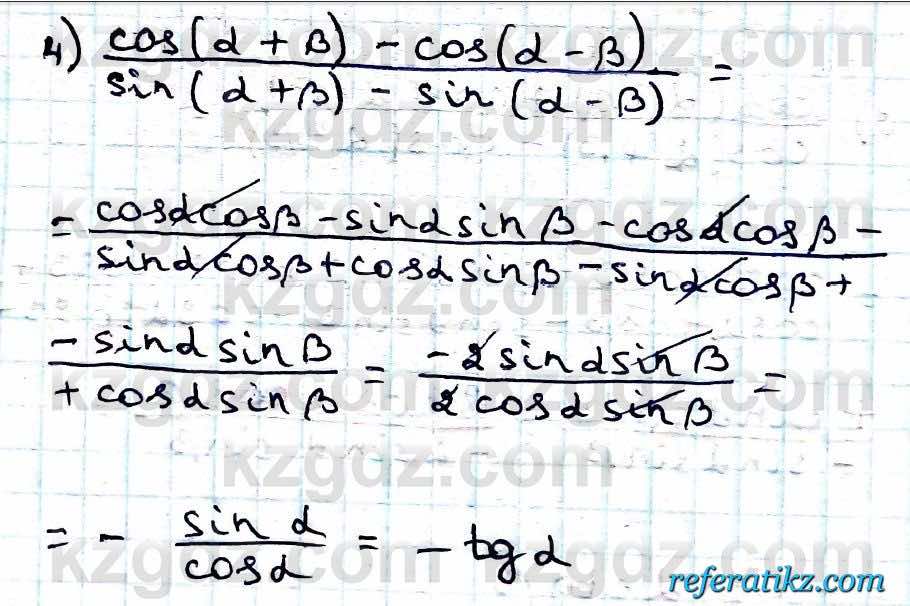 4) cos(α + β) - cos(α - β)
sin(α + β) - sin(α - β) =
= cosαcosβ - sinαsinβ - cosαcosβ -
sinαcosβ + cosαsinβ - sinαcosβ +
- sinαsinβ = -2sinαsinβ =
+ cosαsinβ 2cosαsinβ
= - sinα = - tgα
cosα
kzgdz.com
kzgdz.com
kzgdz.com
kzgdz.com
kzgdz.com
kzgdz.com
referatikz.com